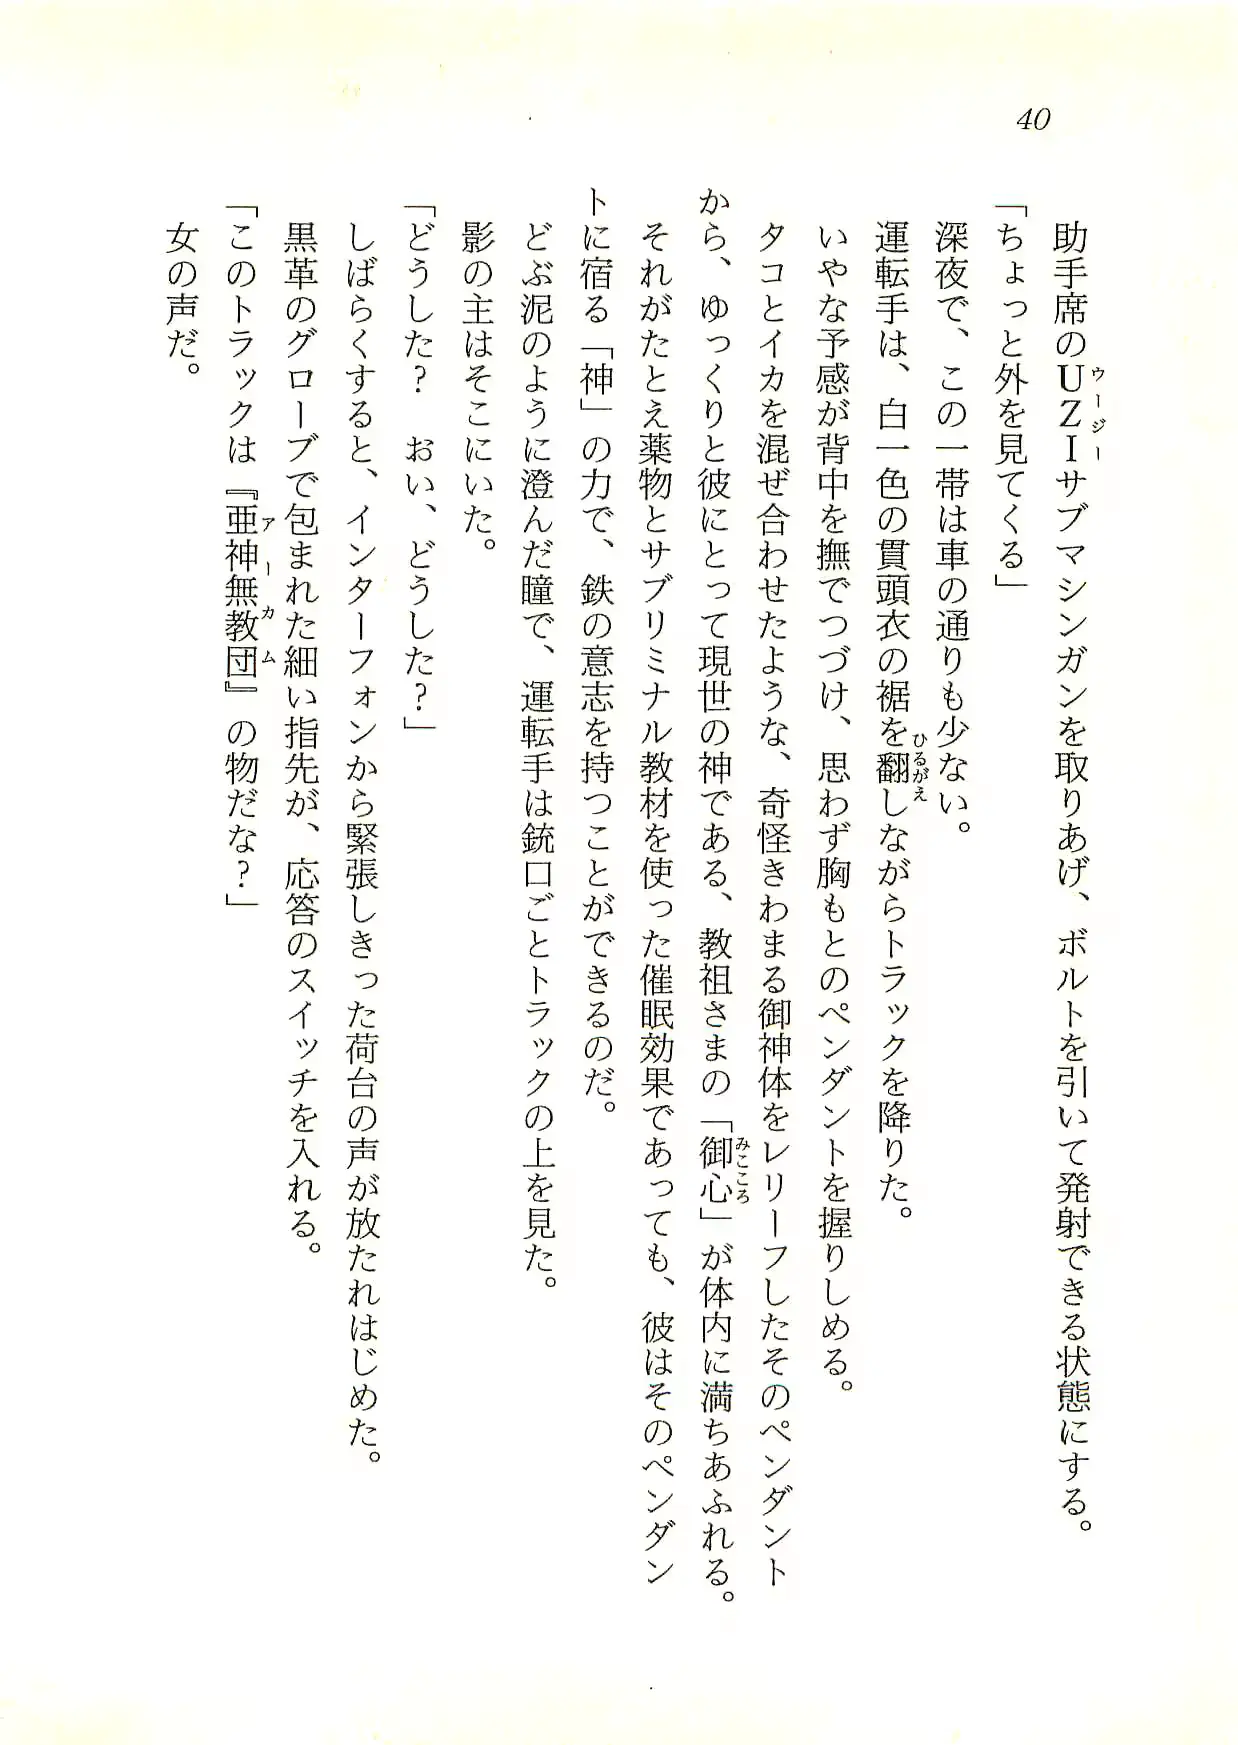 40
助手席のUZIサブマシンガンを取りあげ、ボルトを引いて発射できる状態にする。
ウージー
「ちょっと外を見てくる」
深夜で、この一帯は車の通りも少ない。
運転手は、白一色の貫頭衣の裾を翻しながらトラックを降りた。
ひるがえ
いやな予感が背中を撫でつづけ、思わず胸もとのペンダントを握りしめる。
タコとイカを混ぜ合わせたような、奇怪きわまる御神体をレリーフしたそのペンダント
から、ゆっくりと彼にとって現世の神である、教祖さまの「御心」が体内に満ちあふれる。
みこころ
それがたとえ薬物とサブリミナル教材を使った催眠効果であっても、彼はそのペンダン
トに宿る「神」の力で、鉄の意志を持つことができるのだ。
どぶ泥のように澄んだ瞳で、運転手は銃口ごとトラックの上を見た。
影の主はそこにいた。
「どうした？　おい、どうした？」
しばらくすると、インターフォンから緊張しきった荷台の声が放たれはじめた。
黒革のグローブで包まれた細い指先が、応答のスイッチを入れる。
「このトラックは『亜神無教団』の物だな？」
アーカム
女の声だ。